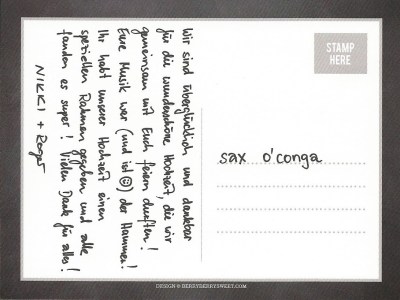 Wir sind überglücklich und dankbar
für die wunderschöne Hochzeit, die wir
gemeinsam mit Euch feiern durften!
Eure Musik war (und ist ☺) der Hammer!
Ihr habt unserer Hochzeit einen
speziellen Rahmen gegeben und alle
fanden es super! Vielen Dank für alles!
NIKKI + Roger
STAMP
HERE
sax o'conga
DESIGN © BERRYBERRYSWEET.COM